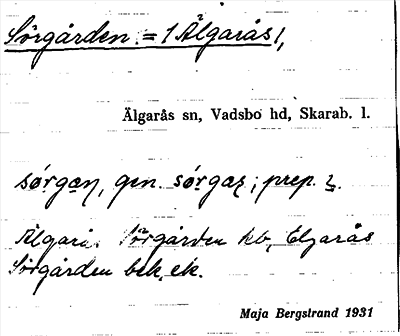 Sörgården = 1 Älgarås 1,
Älgarås sn, Vadsbo hd, Skarab. l.
sǿrgan, gen. sǿrgaz; prep. i.
Älgarå. Sörgården kb, Elgarås
Sörgården bek, ek.
Maja Bergstrand 1931